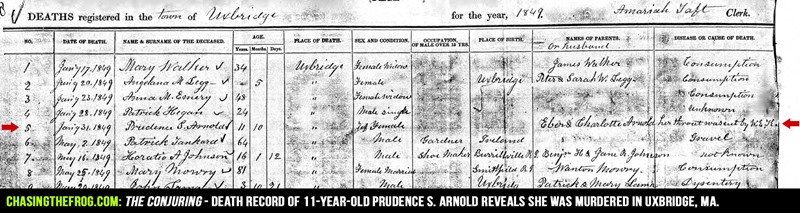 DEATHS registered in the town of Uxbridge for the year, 1849. Amariah Taft Clerk.
NO. DATE OF DEATH. NAME & SURNAME OF THE DECEASED. AGE. PLACE OF DEATH. SEX AND CONDITION. OCCUPATION, OF MALE OVER 15 YRS. PLACE OF BIRTH. NAMES OF PARENTS. DISEASE OR CAUSE OF DEATH.
Years. Months. Days. or husband
1 Jany 17, 1849 Mary Walker 34 Uxbridge Female widow James Walker Consumption
2 Jany 20, 1849 Legg 5 " Female Uxbridge Peter & Sarah W. Legg Consumption
3 Jany 23, 1849 Anna M. Emery 48 " Female widow Consumption
4 Jany 28, 1849 Patrick Hogan 24 " Male single Unknown
5 Jany 31, 1849 Prudence S. Arnold 11 10 " Female Eben & Charlotte Arnold her throat was cut by
6 May. 2, 1849 Patrick 64 " Male Gardner Ireland Gravel
7 May 16, 1849 Horatio A Johnson 16 1 12 " Male Shoe Maker Burrillville R.I. Benjn H. & Jane A. Johnson not known
8 May 25, 1849 Mary Mowry 81 " Female Married Smithfield R.I. Wanton Mowry Consumption
9 1849 3 10 21 " Male Uxbridge Patrick & Mary Dysentery
CHASINGTHEFROG.COM: THE CONJURING - DEATH RECORD OF 11-YEAR-OLD PRUDENCE S. ARNOLD REVEALS SHE WAS MURDERED IN UXBRIDGE, MA.